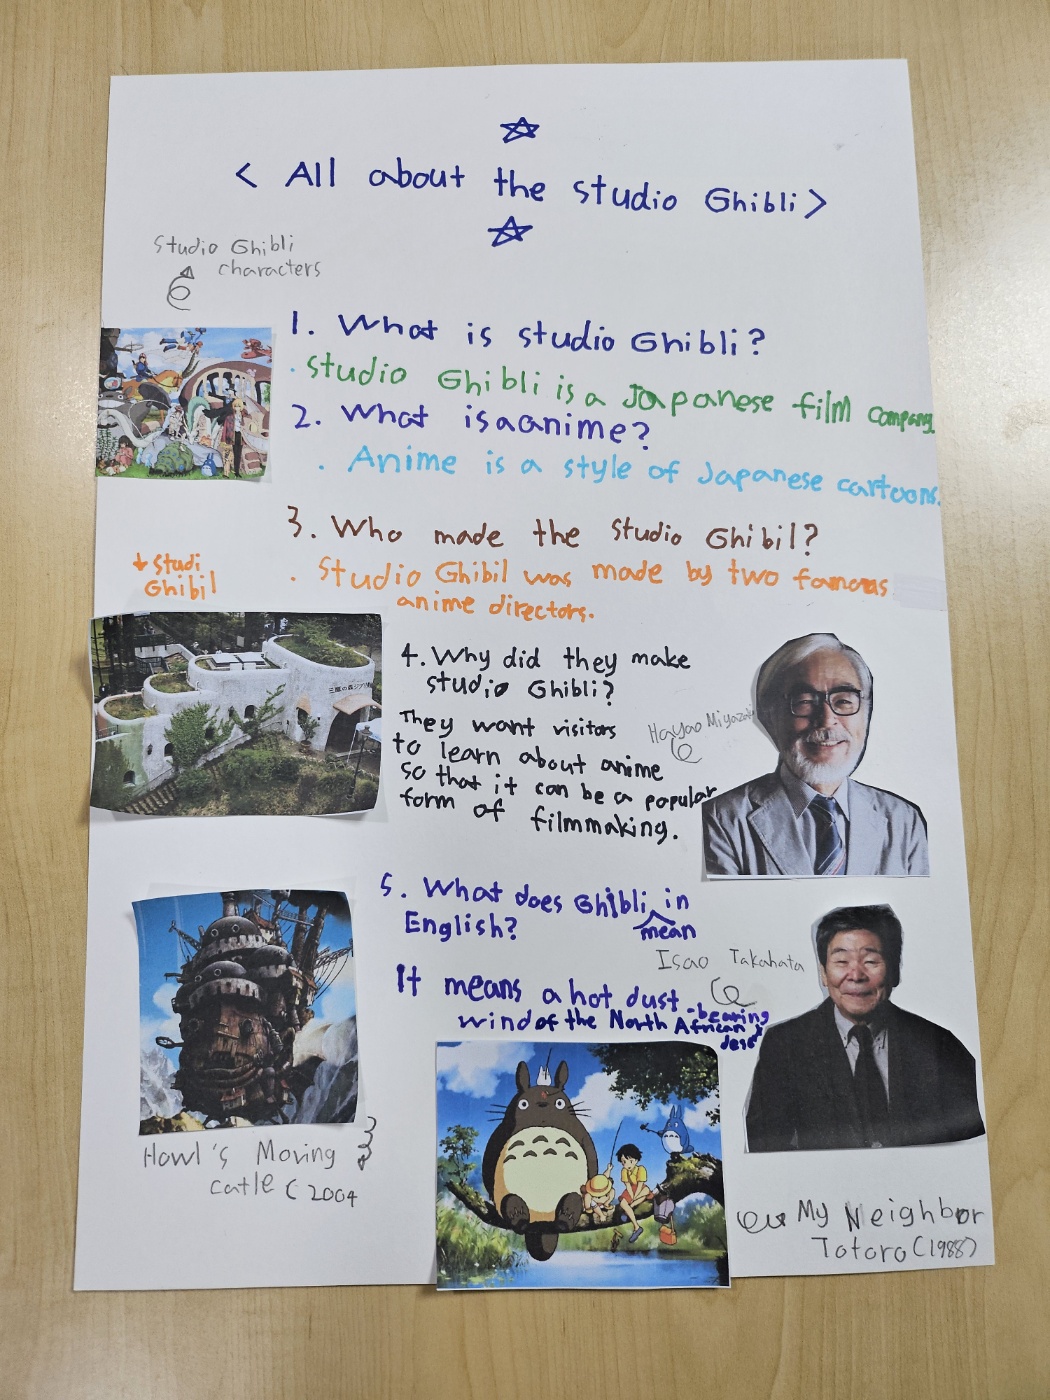 < All about the studio Ghibli >
Studio Ghibli
characters
1. What is studio Ghibli?
. Studio Ghibli is a Japanese film company.
2. What is a anime?
. Anime is a style of Japanese cartoons.
3. Who made the studio Ghibil?
. Studio Ghibil was made by two famous
anime directors.
↓ Studi
Ghibil
4. Why did they make
studio Ghibli?
They want visitors
to learn about anime
so that it can be a popular
form of filmmaking.
Hayao Miyazaki
5. What does Ghibli mean in
English?
It means a hot dust-bearing
wind of the North African
Isao Takahata
Howl's Moving
Catle (2004
My Neighbor
Totoro (1988)